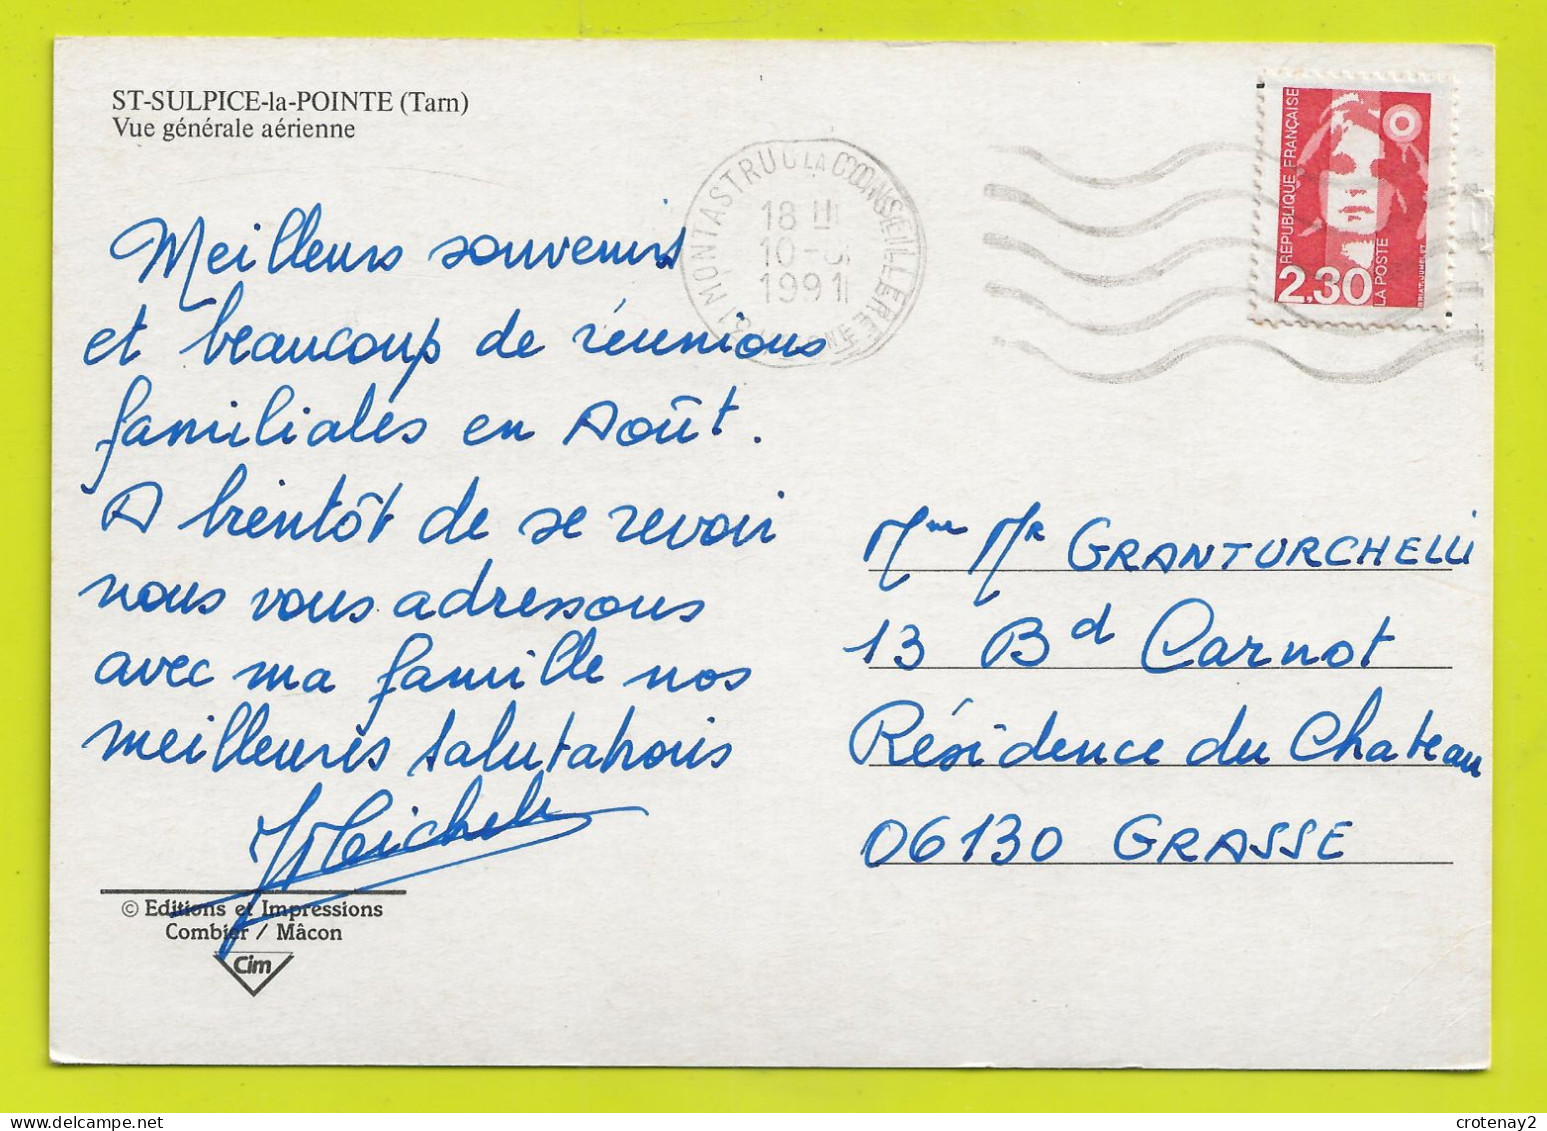 ST-SULPICE-la-POINTE (Tarn)
Vue générale aérienne
Meilleurs souvenirs
et beaucoup de réunions
familiales en Août.
A bientôt de se revoir
nous vous adressons
avec ma famille nos
meilleures salutations
Michel
© Editions et Impressions
Combier / Mâcon
Cim
31 MONTASTRUC LA CONSEILLERE
18 H
10-9
1991
REPUBLIQUE FRANÇAISE
2,30
LA POSTE
BRIAT·JUMELET
Mme Mr GRANTURCHELLI
13 Bd Carnot
Résidence du Chateau
06130 GRASSE
crotenay2